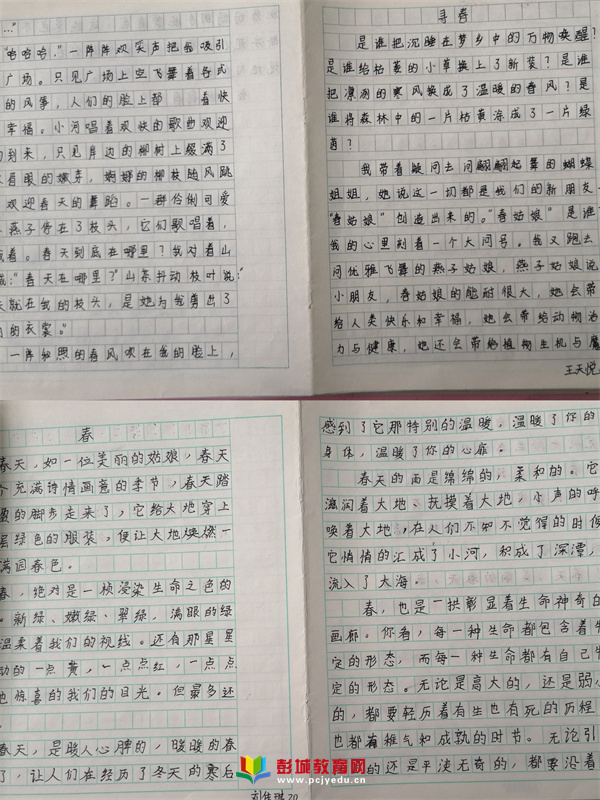 ..."
"哈哈哈."一阵阵欢笑声把我吸引
广场。只见广场上空飞舞着各式
的风筝，人们的脸上都 着快
幸福。小河唱着欢快的歌曲欢迎
的到来，只见岸边的柳树上缀满了
眉眼的嫩芽，婀娜的柳枝随风跳
欢迎春天的舞蹈。一群伶俐可爱
燕子停在了枝头，它们歌唱着，
着。春天到底在哪里？我对着山
喊："春天在哪里？"山茶抖动枝叶说："
天就在我的枝头，是她为我剪出了
的衣裳。"
一阵和煦的春风吹在我的脸上，
寻春
是谁把沉睡在梦乡中的万物唤醒？
是谁给枯萎的小草换上了新装？是谁
把凛冽的寒风换成了温暖的春风？是
谁将森林中的一片枯黄涂成了一片绿
茵？
我带着疑问去问翩翩起舞的蝴蝶
姐姐，她说这一切都是我们的新朋友
"春姑娘"创造出来的。"春姑娘"是谁
我的心里刻着一个大问号。我又跑去
问优雅飞舞的燕子姑娘，燕子姑娘说
小朋友，春姑娘的能耐很大，她会带
给人类快乐和幸福，她会带给动物活
力与健康，她还会带给植物生机与魔
王天悦
春
春天，如一位美丽的姑娘，春天
个充满诗情画意的季节，春天踏
盈的脚步走来了，它给大地穿上
层绿色的服装，便让大地燃一
满园春色。
春，绝对是一桢浸染生命之色的
。新绿、嫩绿、翠绿，满眼的绿
温柔着我们的视线。还有那星星
动的一点黄，一点点红，一点点
也惊喜的我们的目光。但最多还
春天，是暖人心脾的，暖暖的春
了，让人们在经历了冬天的寒后
刘佳琪 20
感到了它那特别的温暖，温暖了你的
身体，温暖了你的心扉。
春天的雨是绵绵的，柔和的。它
滋润着大地、抚摸着大地，小声的呼
唤着大地，在人们不知不觉得的时候
它悄悄的汇成了小河，积成了深潭，
流入了大海。
春，也是一拱彰显着生命神奇的
画廊。你看，每一种生命都包含着特
定的形态，而每一种生命都有自己特
定的形态。无论是高大的，还是弱小
的，都要轻历着有生也有死的历程
也都有稚气和成熟的时节。无论引
的还是平淡无奇的，都要沿着
彭城教育网
www.pcjyedu.cn